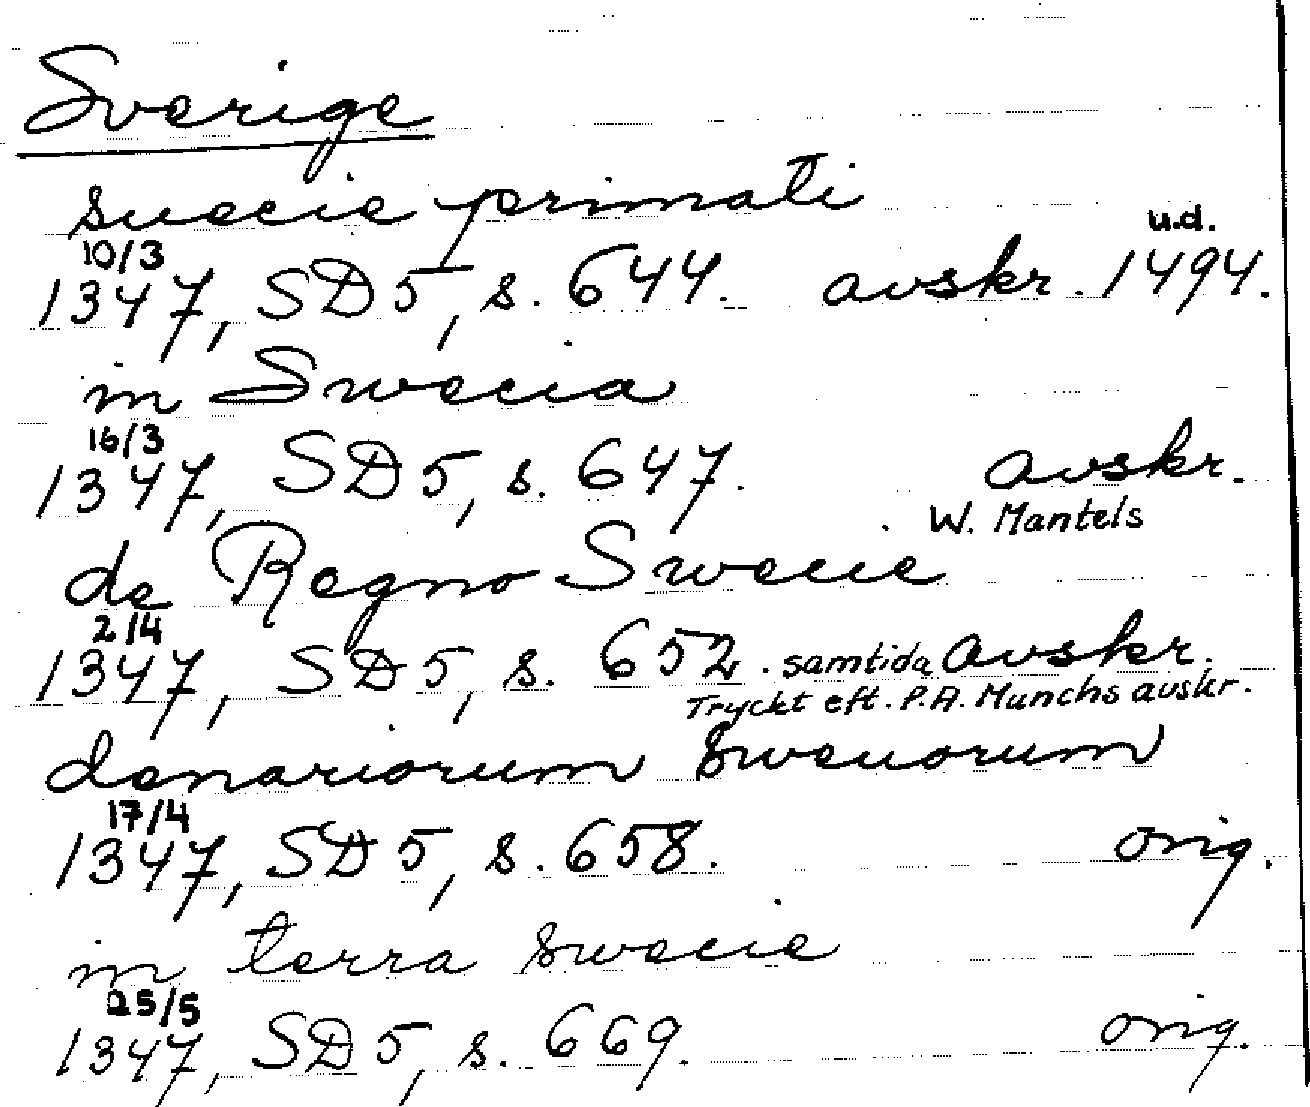 Sverige
suecie primati
10/3 u.d.
1347, SD 5, s. 644. avskr. 1494.
in Swecia
16/3
1347, SD 5, s. 647. avskr.
W. Mantels
de Regno Swecie
2/4
1347, SD 5, s. 652. samtida avskr.
Tryckt eft. P.A. Munchs avskr.
denariorum swecorum
17/4
1347, SD 5, s. 658. orig.
in terra swecie
25/5
1347, SD 5, s. 669. orig.